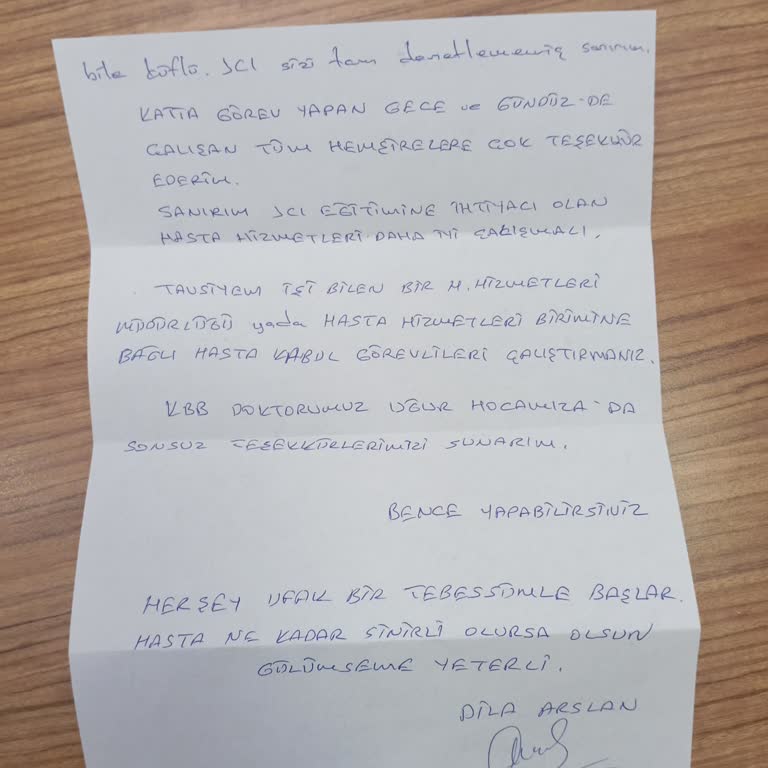 bile küflü. JCI sizi tam denetlememiş sanırım.
KATTA GÖREV YAPAN GECE ve GÜNDÜZ-DE
ÇALIŞAN TÜM HEMŞİRELERE ÇOK TEŞEKKÜR
EDERİM.
SANIRIM JCI EĞİTİMİNE İHTİYACI OLAN
HASTA HİZMETLERİ DAHA İYİ ÇALIŞMALI.
TAVSİYEM İŞİ BİLEN BİR H. HİZMETLERİ
MÜDÜRLÜĞÜ yada HASTA HİZMETLERİ BİRİMİNE
BAĞLI HASTA KABUL GÖREVLİLERİ ÇALIŞTIRMANIZ.
KBB DOKTORUMUZ UĞUR HOCAMIZA-DA
SONSUZ TEŞEKKÜRLERİMİZİ SUNARIM.
BENCE YAPABİLİRSİNİZ
HERŞEY UFAK BİR TEBESSÜMLE BAŞLAR.
HASTA NE KADAR SİNİRLİ OLURSA OLSUN
GÜLÜMSEME YETERLİ.
DİLA ARSLAN